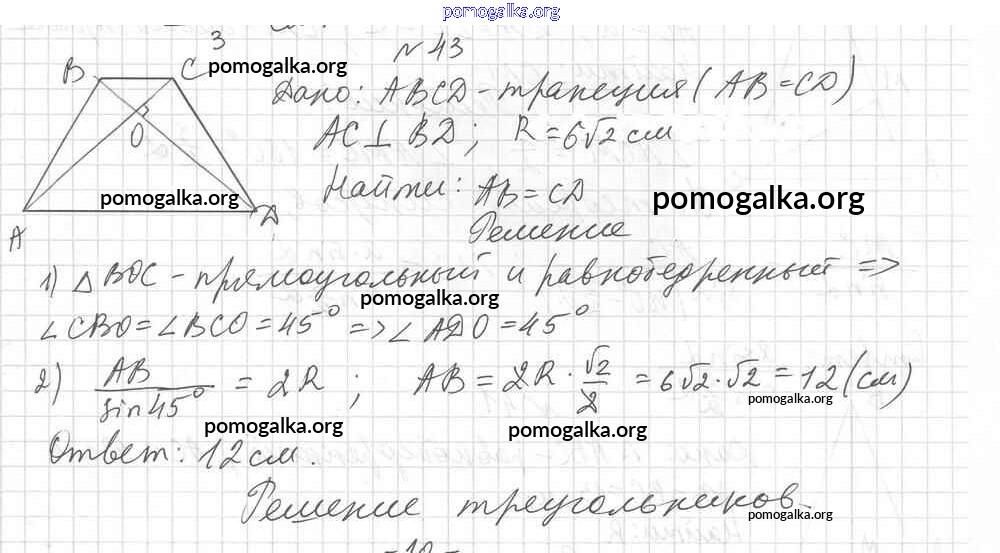 pomogalka.org
3
№ 43
B C pomogalka.org
Дано: ABCD - трапеция (AB = CD)
O
AC ⊥ BD; R = 6√2 см
Найти: AB = CD
pomogalka.org pomogalka.org
A D
Решение
1) △ BOC - прямоугольный и равнобедренный =>
pomogalka.org
∠CBO = ∠BCO = 45° => ∠ADO = 45°
2) AB/sin45° = 2R; AB = 2R · √2/2 = 6√2·√2 = 12 (см)
pomogalka.org
pomogalka.org pomogalka.org
Ответ: 12 см.
Решение треугольников
pomogalka.org